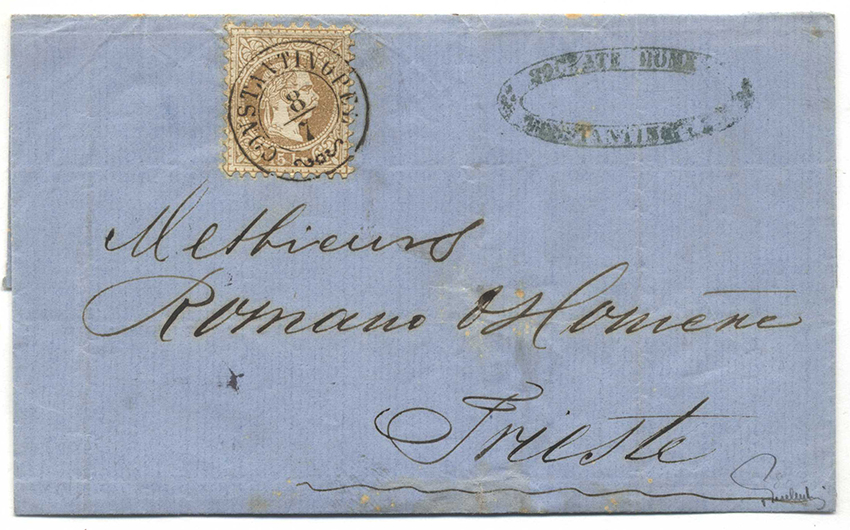 CONSTANTINOPEL
8/7
SOCRATE HOM
CONSTANTIN
Methieurs
Romano & Homère
Trieste